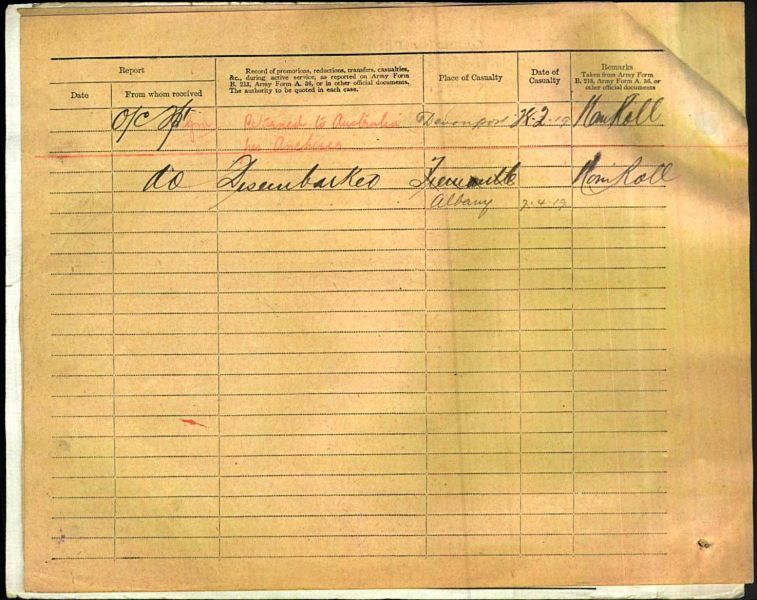 Report
Date
From whom received
Record of promotions, reductions, transfers, casualties,
&c., during active service, as reported on Army Form
B. 213, Army Form A. 36, or in other official documents.
The authority to be quoted in each case.
Place of Casualty
Date of
Casualty
Remarks
Taken from Army Form
B. 213, Army Form A. 36, or
other official documents
O/C Returned to Australia Devonport 2.19 Nom Roll
per Anchises
do Disembarked Fremantle Nom Roll
Albany 2.4.19